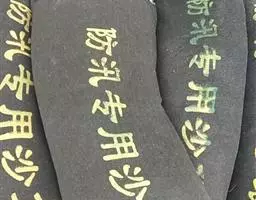 防汛专用沙
防汛专用沙
防汛专用沙